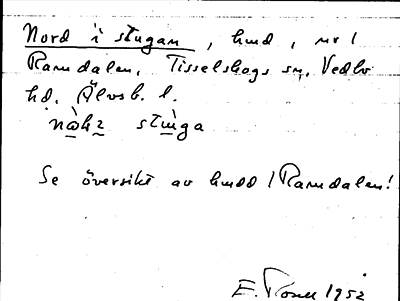 Nord i stugan, hmd, nr 1
Ramdalen, Tisselskogs sn, Vedbo
hd, Älvsb. l.
stu̲nga
Se översikt av hmdd / Ramdalen!
1952